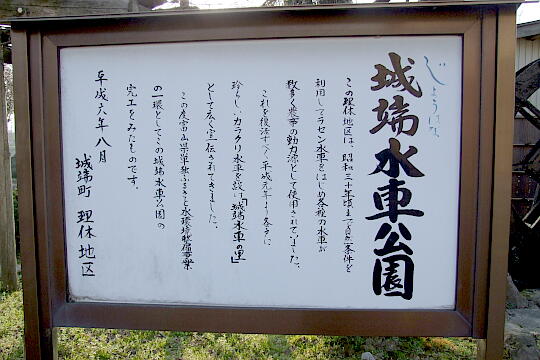 じょうはな
城端水車公園
この理休地区は、昭和二十年頃まで自然条件を
利用してラセン水車をはじめ各種の水車が
数多く農事の動力源として使用されていました。
これを復活すべく平成元年より冬季に
珍らしいカラクリ水車を設け「城端水車の里」
として広く宣伝されてきました。
この度富山県単独ふるさと水環境整備事業
の一環としてこの城端水車公園の
完工をみたものです。
平成六年八月
城端町 理休地区